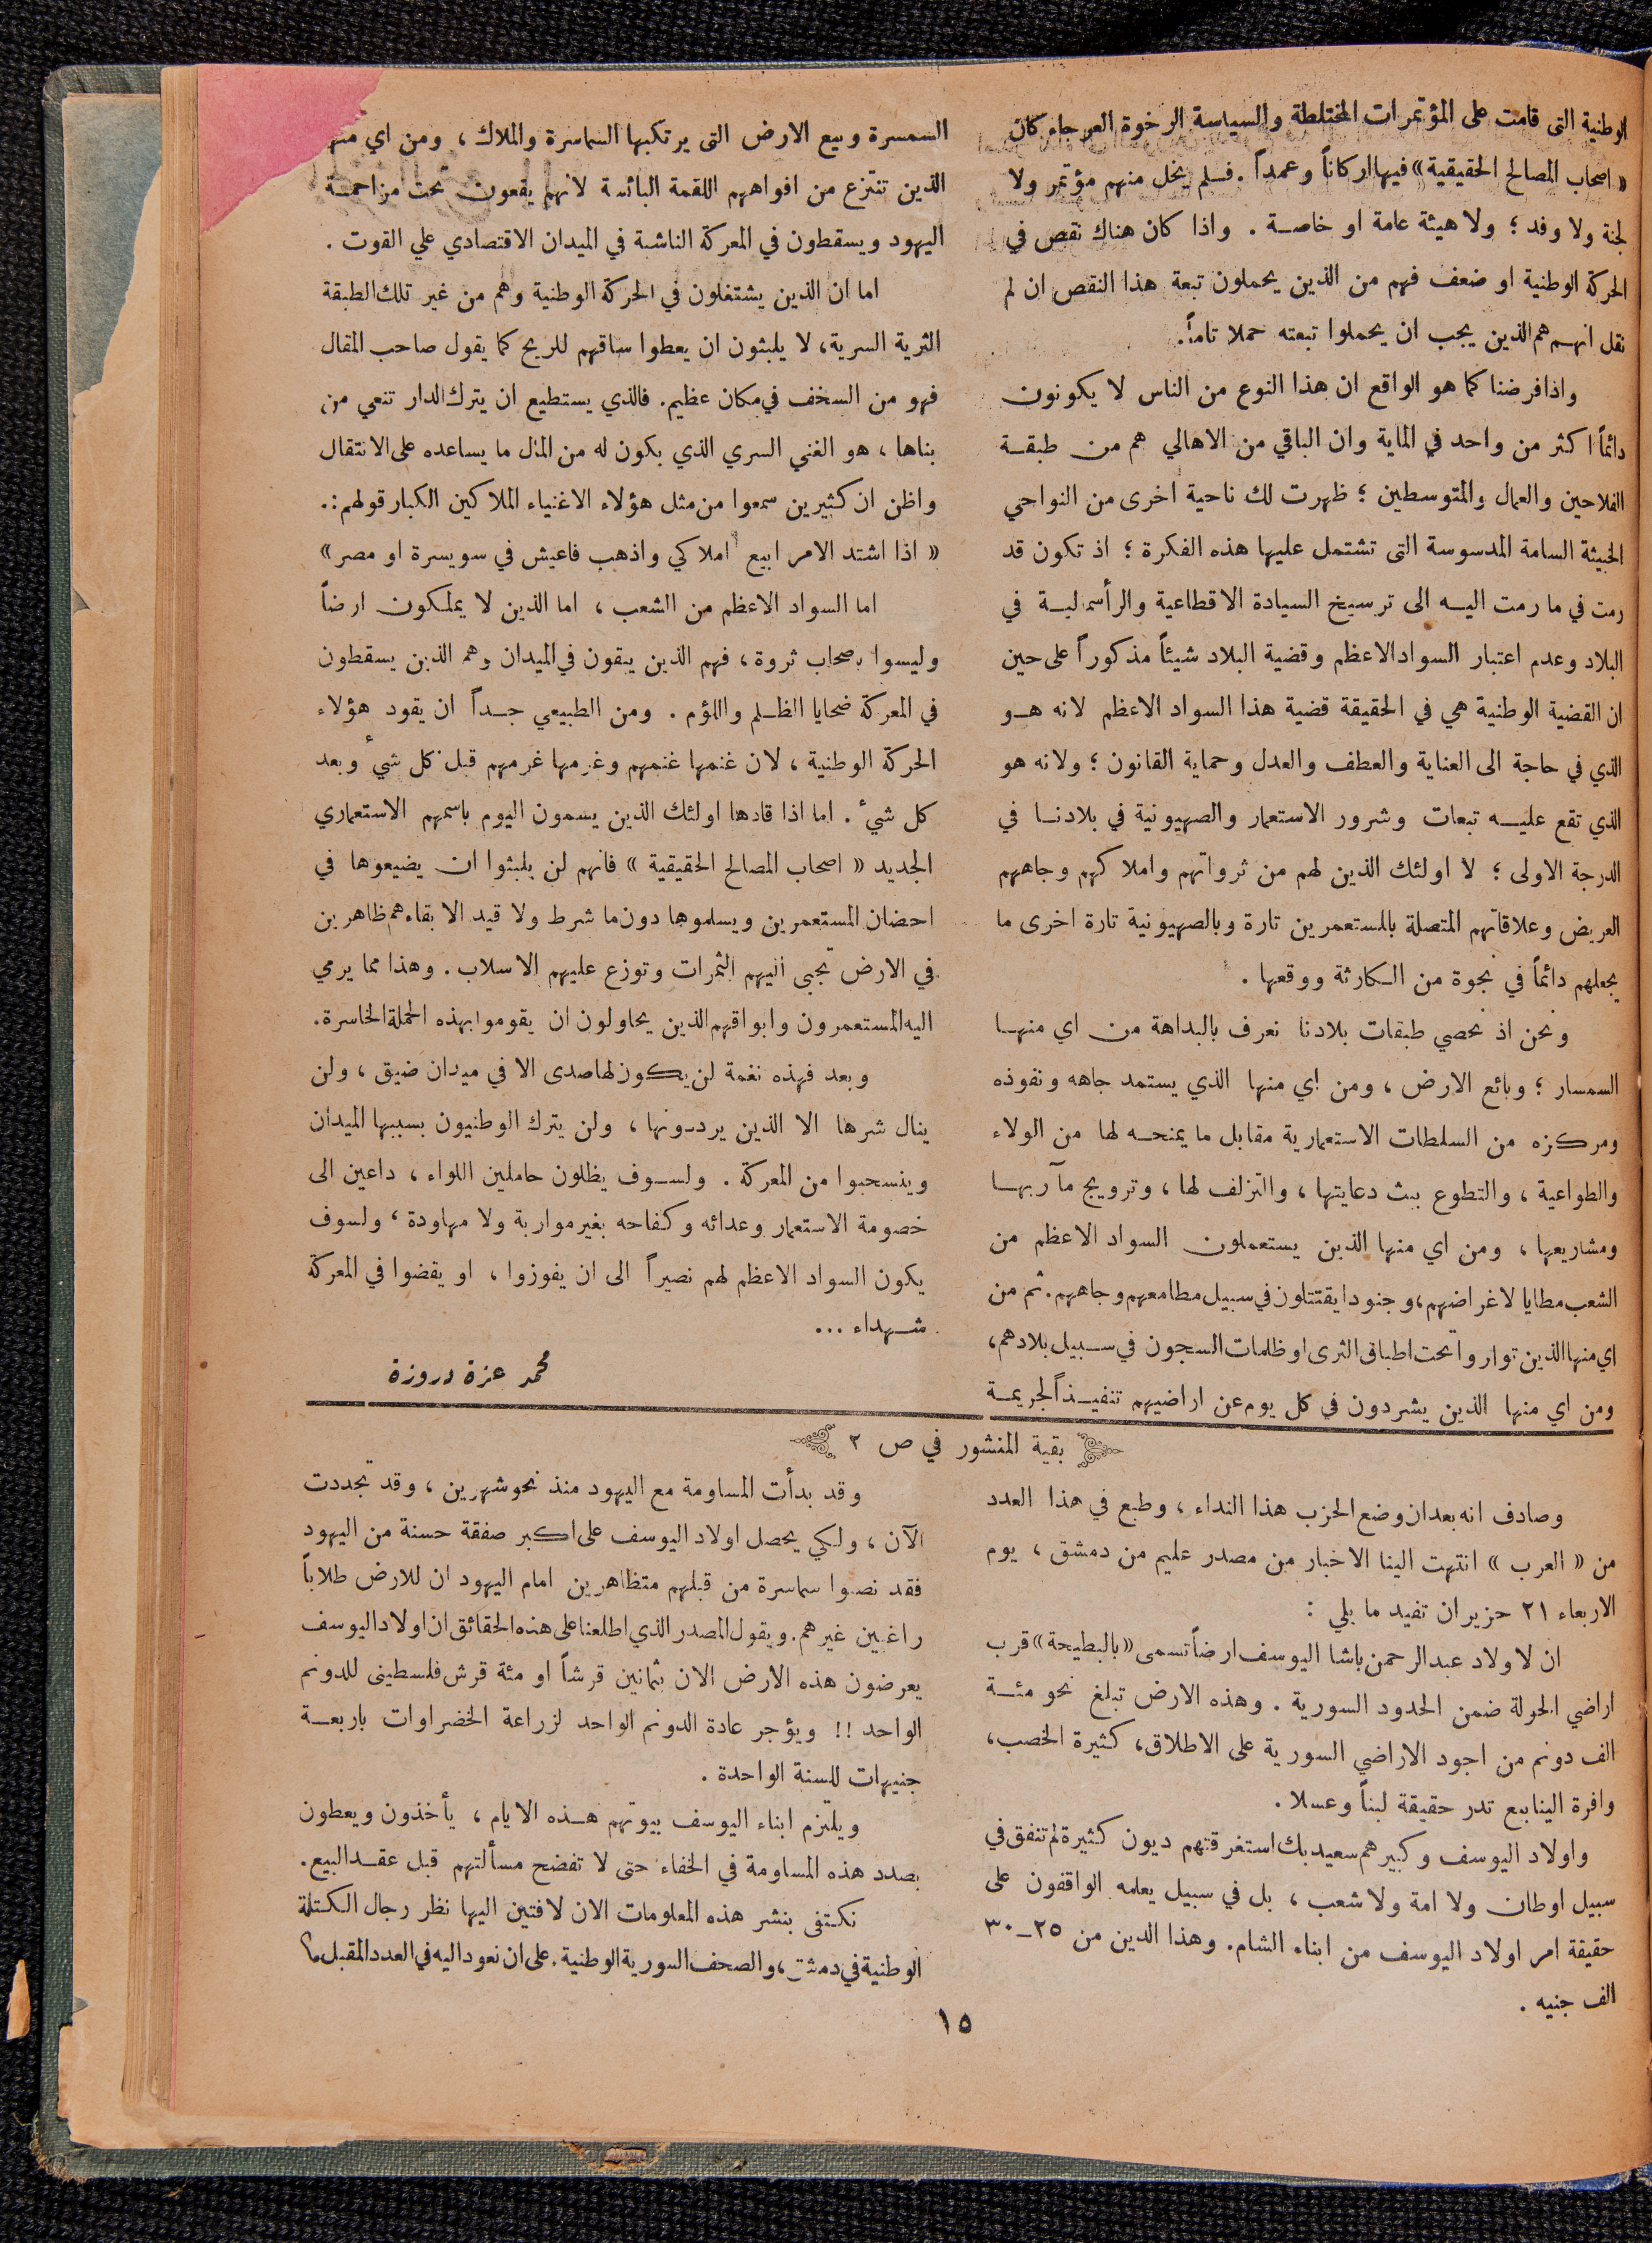 الوطنية التى قامت على المؤتمرات المختلطة والسياسة الرخوة العرجاء كان
« اصحاب المصالح الحقيقية» فيها اركاناً وعمداً . فلم يخل منهم مؤتمر ولا
لجنة ولا وفد ؛ ولا هيئة عامة او خاصة . واذا كان هناك نقص في
الحركة الوطنية او ضعف فهم من الذين يحملون تبعة هذا النقص ان لم
نقل انهم هم الذين يجب ان يحملوا تبعته حملا تاماً.
واذا فرضنا كما هو الواقع ان هذا النوع من الناس لا يكونون
دائماً اكثر من واحد في الماية وان الباقي من الاهالي هم من طبقة
الفلاحين والعمال والمتوسطين ؛ ظهرت لك ناحية اخرى من النواحي
الخبيثة السامة المدسوسة التى تشتمل عليها هذه الفكرة ؛ اذ تكون قد
رمت في ما رمت اليه الى ترسيخ السيادة الاقطاعية والرأسمالية في
البلاد وعدم اعتبار السواد الاعظم وقضية البلاد شيئاً مذكوراً على حين
ان القضية الوطنية هي في الحقيقة قضية هذا السواد الاعظم لانه هو
الذي في حاجة الى العناية والعطف والعدل وحماية القانون ؛ ولانه هو
الذي تقع عليه تبعات وشرور الاستعمار والصهيونية في بلادنا في
الدرجة الاولى ؛ لا اولئك الذين لهم من ثرواتهم واملاكهم وجاههم
العريض وعلاقاتهم المتصلة بالمستعمرين تارة وبالصهيونية تارة اخرى ما
يجعلهم دائماً في نجوة من الكارثة ووقعها .
ونحن اذ نحصي طبقات بلادنا نعرف بالبداهة من اي منها
السمسار ؛ وبائع الارض ، ومن اي منها الذي يستمد جاهه ونفوذه
ومركزه من السلطات الاستعمارية مقابل ما يمنحه لها من الولاء
والطواعية ، والتطوع ببث دعايتها ، والتزلف لها ، وترويج مآربها
ومشاريعها ، ومن اي منها الذين يستعملون السواد الاعظم من
الشعب مطايا لاغراضهم، وجنودا يقتتلون في سبيل مطامعهم وجاههم. ثم من
اي منها الذين تواروا تحت اطباق الثرى او ظلمات السجون في سبيل بلادهم،
ومن اي منها الذين يشردون في كل يوم عن اراضيهم تنفيذاً لجريمة
السمسرة وبيع الارض التى يرتكبها السماسرة والملاك ، ومن اي منها
الذين تنتزع من افواههم اللقمة البائسة لانهم يقعون تحت مزاحمة
اليهود ويسقطون في المعركة الناشبة في الميدان الاقتصادي علي القوت .
اما ان الذين يشتغلون في الحركة الوطنية وهم من غير تلك الطبقة
الثرية السرية، لا يلبثون ان يعطوا ساقهم للريح كما يقول صاحب المقال
فهو من السخف في مكان عظيم. فالذي يستطيع ان يترك الدار تنعي من
بناها ، هو الغني السري الذي يكون له من المال ما يساعده على الانتقال
واظن ان كثيرين سمعوا من مثل هؤلاء الاغنياء الملاكين الكبار قولهم:.
« اذا اشتد الامر ابيع املاكي واذهب فاعيش في سويسرة او مصر»
اما السواد الاعظم من الشعب ، اما الذين لا يملكون ارضاً
وليسوا بصحاب ثروة ، فهم الذين يبقون في الميدان وهم الذين يسقطون
في المعركة ضحايا الظلم واللؤم . ومن الطبيعي جداً ان يقود هؤلاء
الحركة الوطنية ، لان غنمها غنمهم وغرمها غرمهم قبل كل شيء وبعد
كل شيء . اما اذا قادها اولئك الذين يسمون اليوم باسمهم الاستعماري
الجديد « اصحاب المصالح الحقيقية » فانهم لن يلبثوا ان يضيعوها في
احضان المستعمرين ويسلموها دون ما شرط ولا قيد الا بقاءهم ظاهرين
في الارض تجبى اليهم الثمرات وتوزع عليهم الاسلاب . وهذا مما يرمي
اليه المستعمرون وابواقهم الذين يحاولون ان يقوموا بهذه الحملة الخاسرة.
وبعد فهذه نغمة لن يكون لها صدى الا في ميدان ضيق ، ولن
ينال شرها الا الذين يرددونها ، ولن يترك الوطنيون بسببها الميدان
وينسحبوا من المعركة . ولسوف يظلون حاملين اللواء ، داعين الى
خصومة الاستعمار وعدائه وكفاحه بغير مواربة ولا مهاودة ، ولسوف
يكون السواد الاعظم لهم نصيراً الى ان يفوزوا ، او يقضوا في المعركة
شهداء ...
محمد عزة دروزة
بقية المنشور في ص ٢
وصادف انه بعد ان وضع الحزب هذا النداء ، وطبع في هذا العدد
من « العرب » انتهت الينا الاخبار من مصدر عليم من دمشق ، يوم
الاربعاء ٢١ حزيران تفيد ما يلي :
ان لاولاد عبد الرحمن باشا اليوسف ارضاً تسمى «بالبطيحة» قرب
اراضي الحولة ضمن الحدود السورية . وهذه الارض تبلغ نحو مئة
الف دونم من اجود الاراضي السورية على الاطلاق، كثيرة الخصب،
وافرة الينابيع تدر حقيقة لبناً وعسلا .
واولاد اليوسف وكبيرهم سعيد بك استغرقتهم ديون كثيرة لم تنفق في
سبيل اوطان ولا امة ولا شعب ، بل في سبيل يعلمه الواقفون على
حقيقة امر اولاد اليوسف من ابناء الشام. وهذا الدين من ٢٥ـ٣٠
الف جنيه .
وقد بدأت المساومة مع اليهود منذ نحو شهرين ، وقد تجددت
الآن ، ولكي يحصل اولاد اليوسف على اكبر صفقة حسنة من اليهود
فقد نصبوا سماسرة من قبلهم متظاهرين امام اليهود ان للارض طلاباً
راغبين غيرهم. ويقول المصدر الذي اطلعنا على هذه الحقائق ان اولاد اليوسف
يعرضون هذه الارض الان بثمانين قرشاً او مئة قرش فلسطينى للدونم
الواحد !! ويؤجر عادة الدونم الواحد لزراعة الخضراوات باربعة
جنيهات للسنة الواحدة .
ويلتزم ابناء اليوسف بيوتهم هذه الايام ، يأخذون ويعطون
بصدد هذه المساومة في الخفاء حتى لا تفضح مسألتهم قبل عقد البيع.
نكتفى بنشر هذه المعلومات الان لافتين اليها نظر رجال الكتلة
الوطنية في دمشق، والصحف السورية الوطنية. على ان نعود اليه في العدد المقبل
١٥